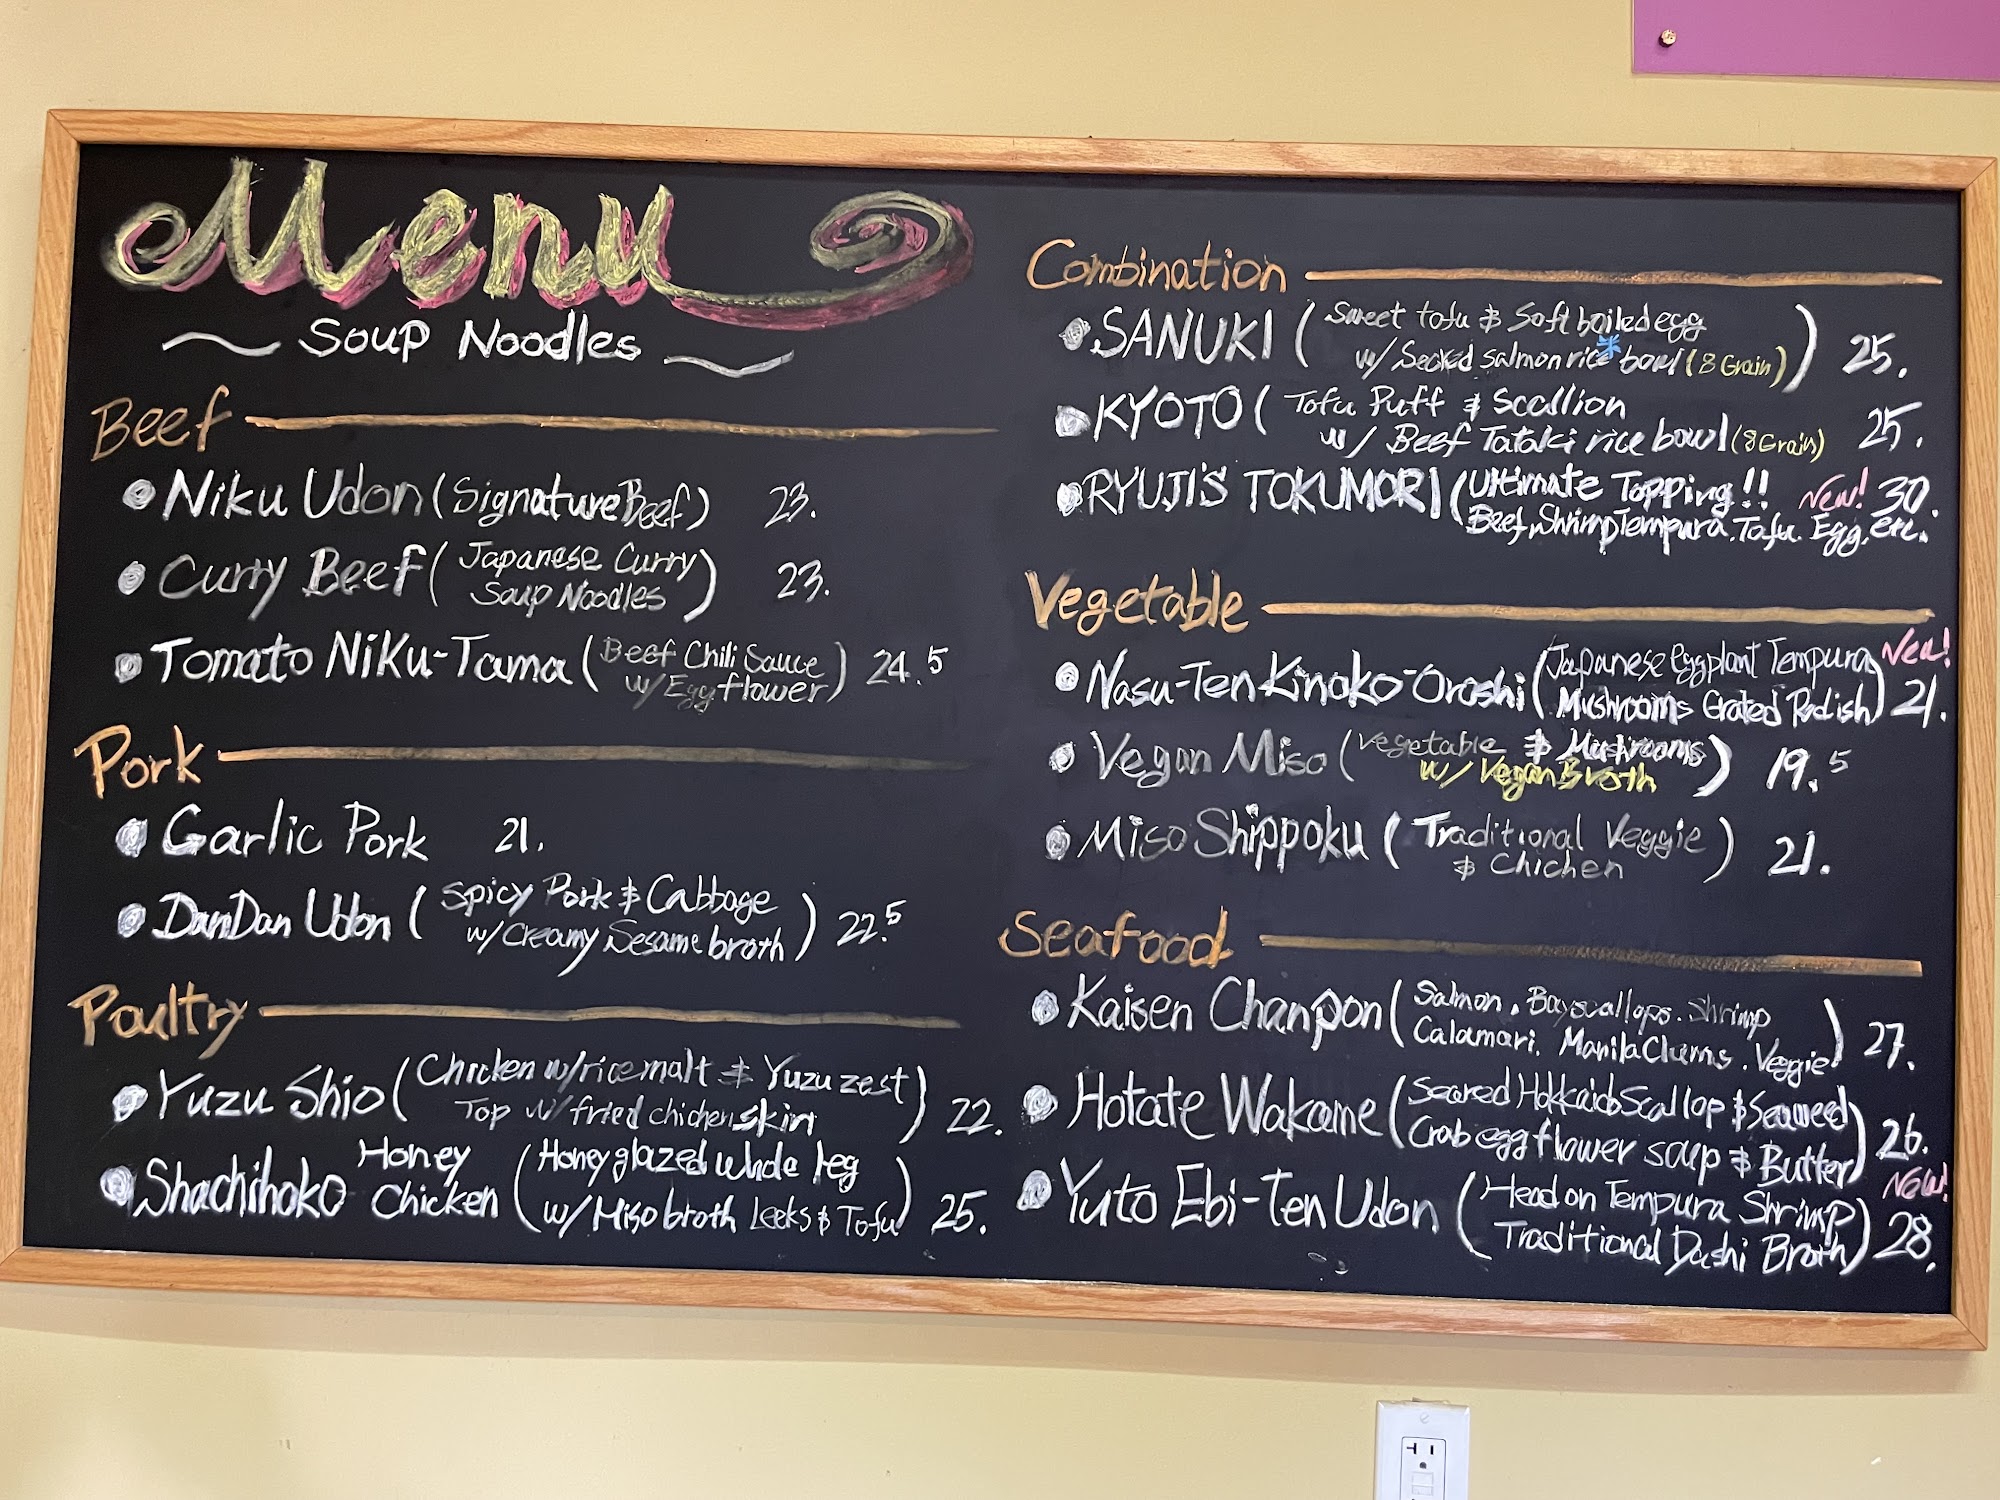 Menu
Soup Noodles
Beef
Niku Udon (Signature Beef) 23.
Curry Beef (Japanese Curry
Soup Noodles) 23.
Tomato Niku-Tama (Beef Chili Sauce
w/ Egg flower) 24.5
Pork
Garlic Pork 21.
DanDan Udon (Spicy Pork & Cabbage
w/ Creamy Sesame broth) 22.5
Poultry
Yuzu Shio (Chicken w/ rice malt & Yuzu zest
Top w/ fried chicken skin) 22.
Shachihoko Honey
Chicken (Honey glazed whole leg
w/ Miso broth Leeks & Tofu) 25.
Combination
SANUKI (Sweet tofu & Soft boiled egg
w/ salmon rice* bowl (8 Grain)) 25.
KYOTO (Tofu Puff & Scallion
w/ Beef Tataki rice bowl (8 Grain) 25.
RYUJI'S TOKUMORI (Ultimate Topping!! New! 30.
Beef, Shrimp Tempura. Tofu. Egg, etc.
Vegetable
Nasu-Ten-Kinoko-Oroshi (Japanese eggplant Tempura New!
Mushrooms Grated Radish) 21.
Vegan Miso (Vegetable & Mushrooms
w/ Vegan Broth) 19.5
Miso Shippoku (Traditional Veggie
& Chicken) 21.
Seafood
Kaisen Chanpon (Salmon, Bayscallops. Shrimp
Calamari. Manila Clams. Veggie) 27.
Hotate Wakame (Seared Hokkaido Scallop & Seaweed
Crab egg flower soup & Butter) 26.
Yuto Ebi-Ten Udon (Head on Tempura Shrimp New!
Traditional Dashi Broth) 28.